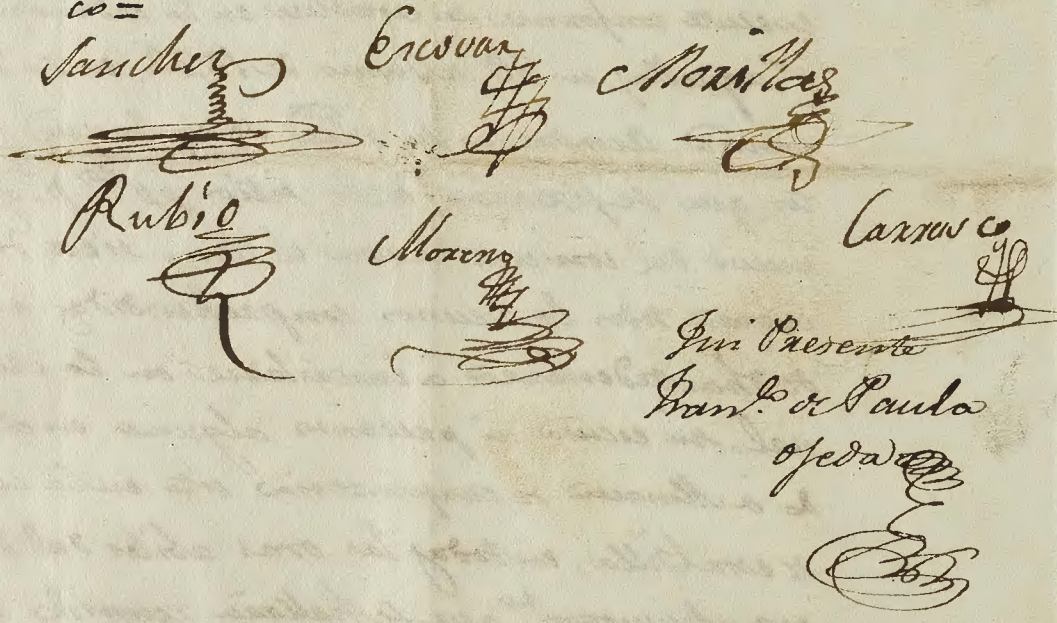 co=
Sanchez Escovar Morillas
Rubio Moreno Carrasco
Fui Presente
Fran.co de Paula
ojeda